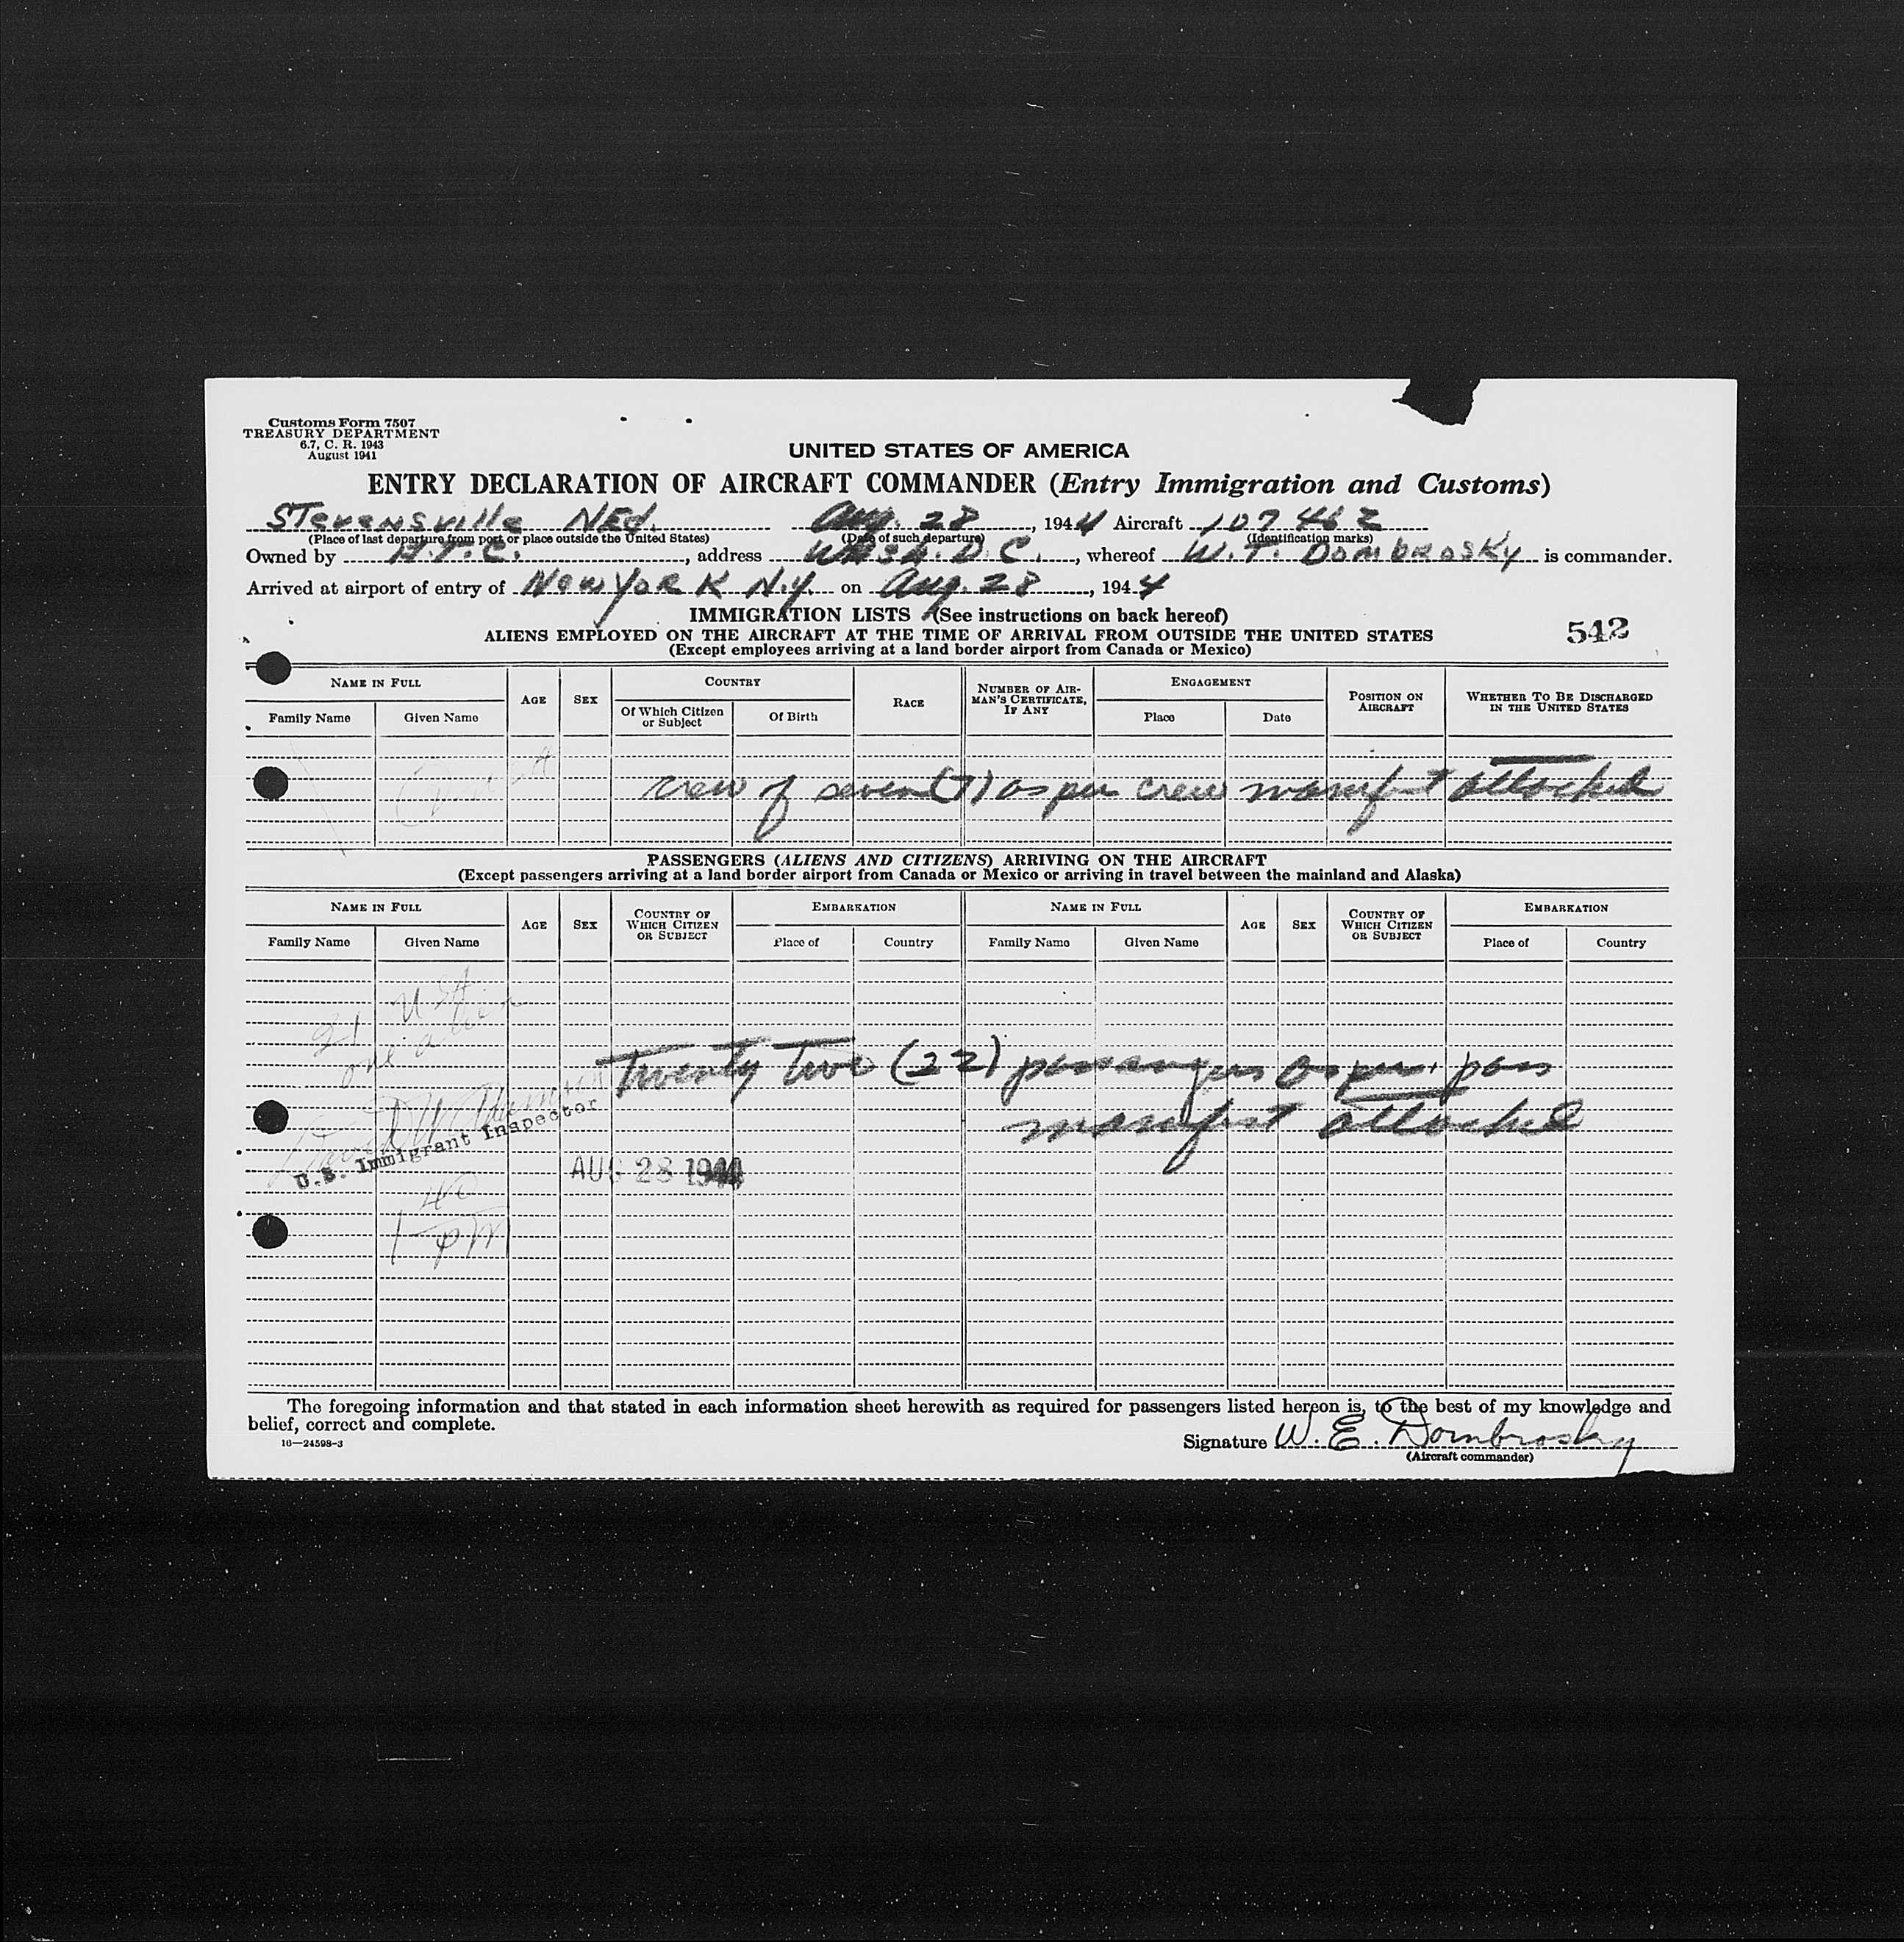 Customs Form 7507
TREASURY DEPARTMENT
6.7, C. R. 1943
August 1941
UNITED STATES OF AMERICA
ENTRY DECLARATION OF AIRCRAFT COMMANDER (Entry Immigration and Customs)
Stevensville NFd. Aug. 28, 1944 Aircraft 107462
(Place of last departure from port or place outside the United States) (Date of such departure) (Identification marks)
Owned by A.T.C., address Wash. D.C., whereof W.T. Dombrosky is commander.
Arrived at airport of entry of New York N.Y. on Aug. 28, 1944
IMMIGRATION LISTS (See instructions on back hereof)
ALIENS EMPLOYED ON THE AIRCRAFT AT THE TIME OF ARRIVAL FROM OUTSIDE THE UNITED STATES
542
(Except employees arriving at a land border airport from Canada or Mexico)
NAME IN FULL AGE SEX COUNTRY RACE NUMBER OF AIRMAN'S CERTIFICATE, IF ANY ENGAGEMENT POSITION ON AIRCRAFT WHETHER TO BE DISCHARGED IN THE UNITED STATES
Family Name Given Name Of Which Citizen or Subject Of Birth Place Date
crew of seven (7) as per crew manifest attached
PASSENGERS (ALIENS AND CITIZENS) ARRIVING ON THE AIRCRAFT
(Except passengers arriving at a land border airport from Canada or Mexico or arriving in travel between the mainland and Alaska)
NAME IN FULL AGE SEX COUNTRY OF WHICH CITIZEN OR SUBJECT EMBARKATION NAME IN FULL AGE SEX COUNTRY OF WHICH CITIZEN OR SUBJECT EMBARKATION
Family Name Given Name Place of Country Family Name Given Name Place of Country
21 USA
one alien
Twenty two (22) passengers as per pass
manifest attached
U.S. Immigrant Inspector
AUG 28 1944
1 40 pM
The foregoing information and that stated in each information sheet herewith as required for passengers listed hereon is, to the best of my knowledge and
belief, correct and complete.
16—24598-3
Signature W. E. Dombrosky
(Aircraft commander)